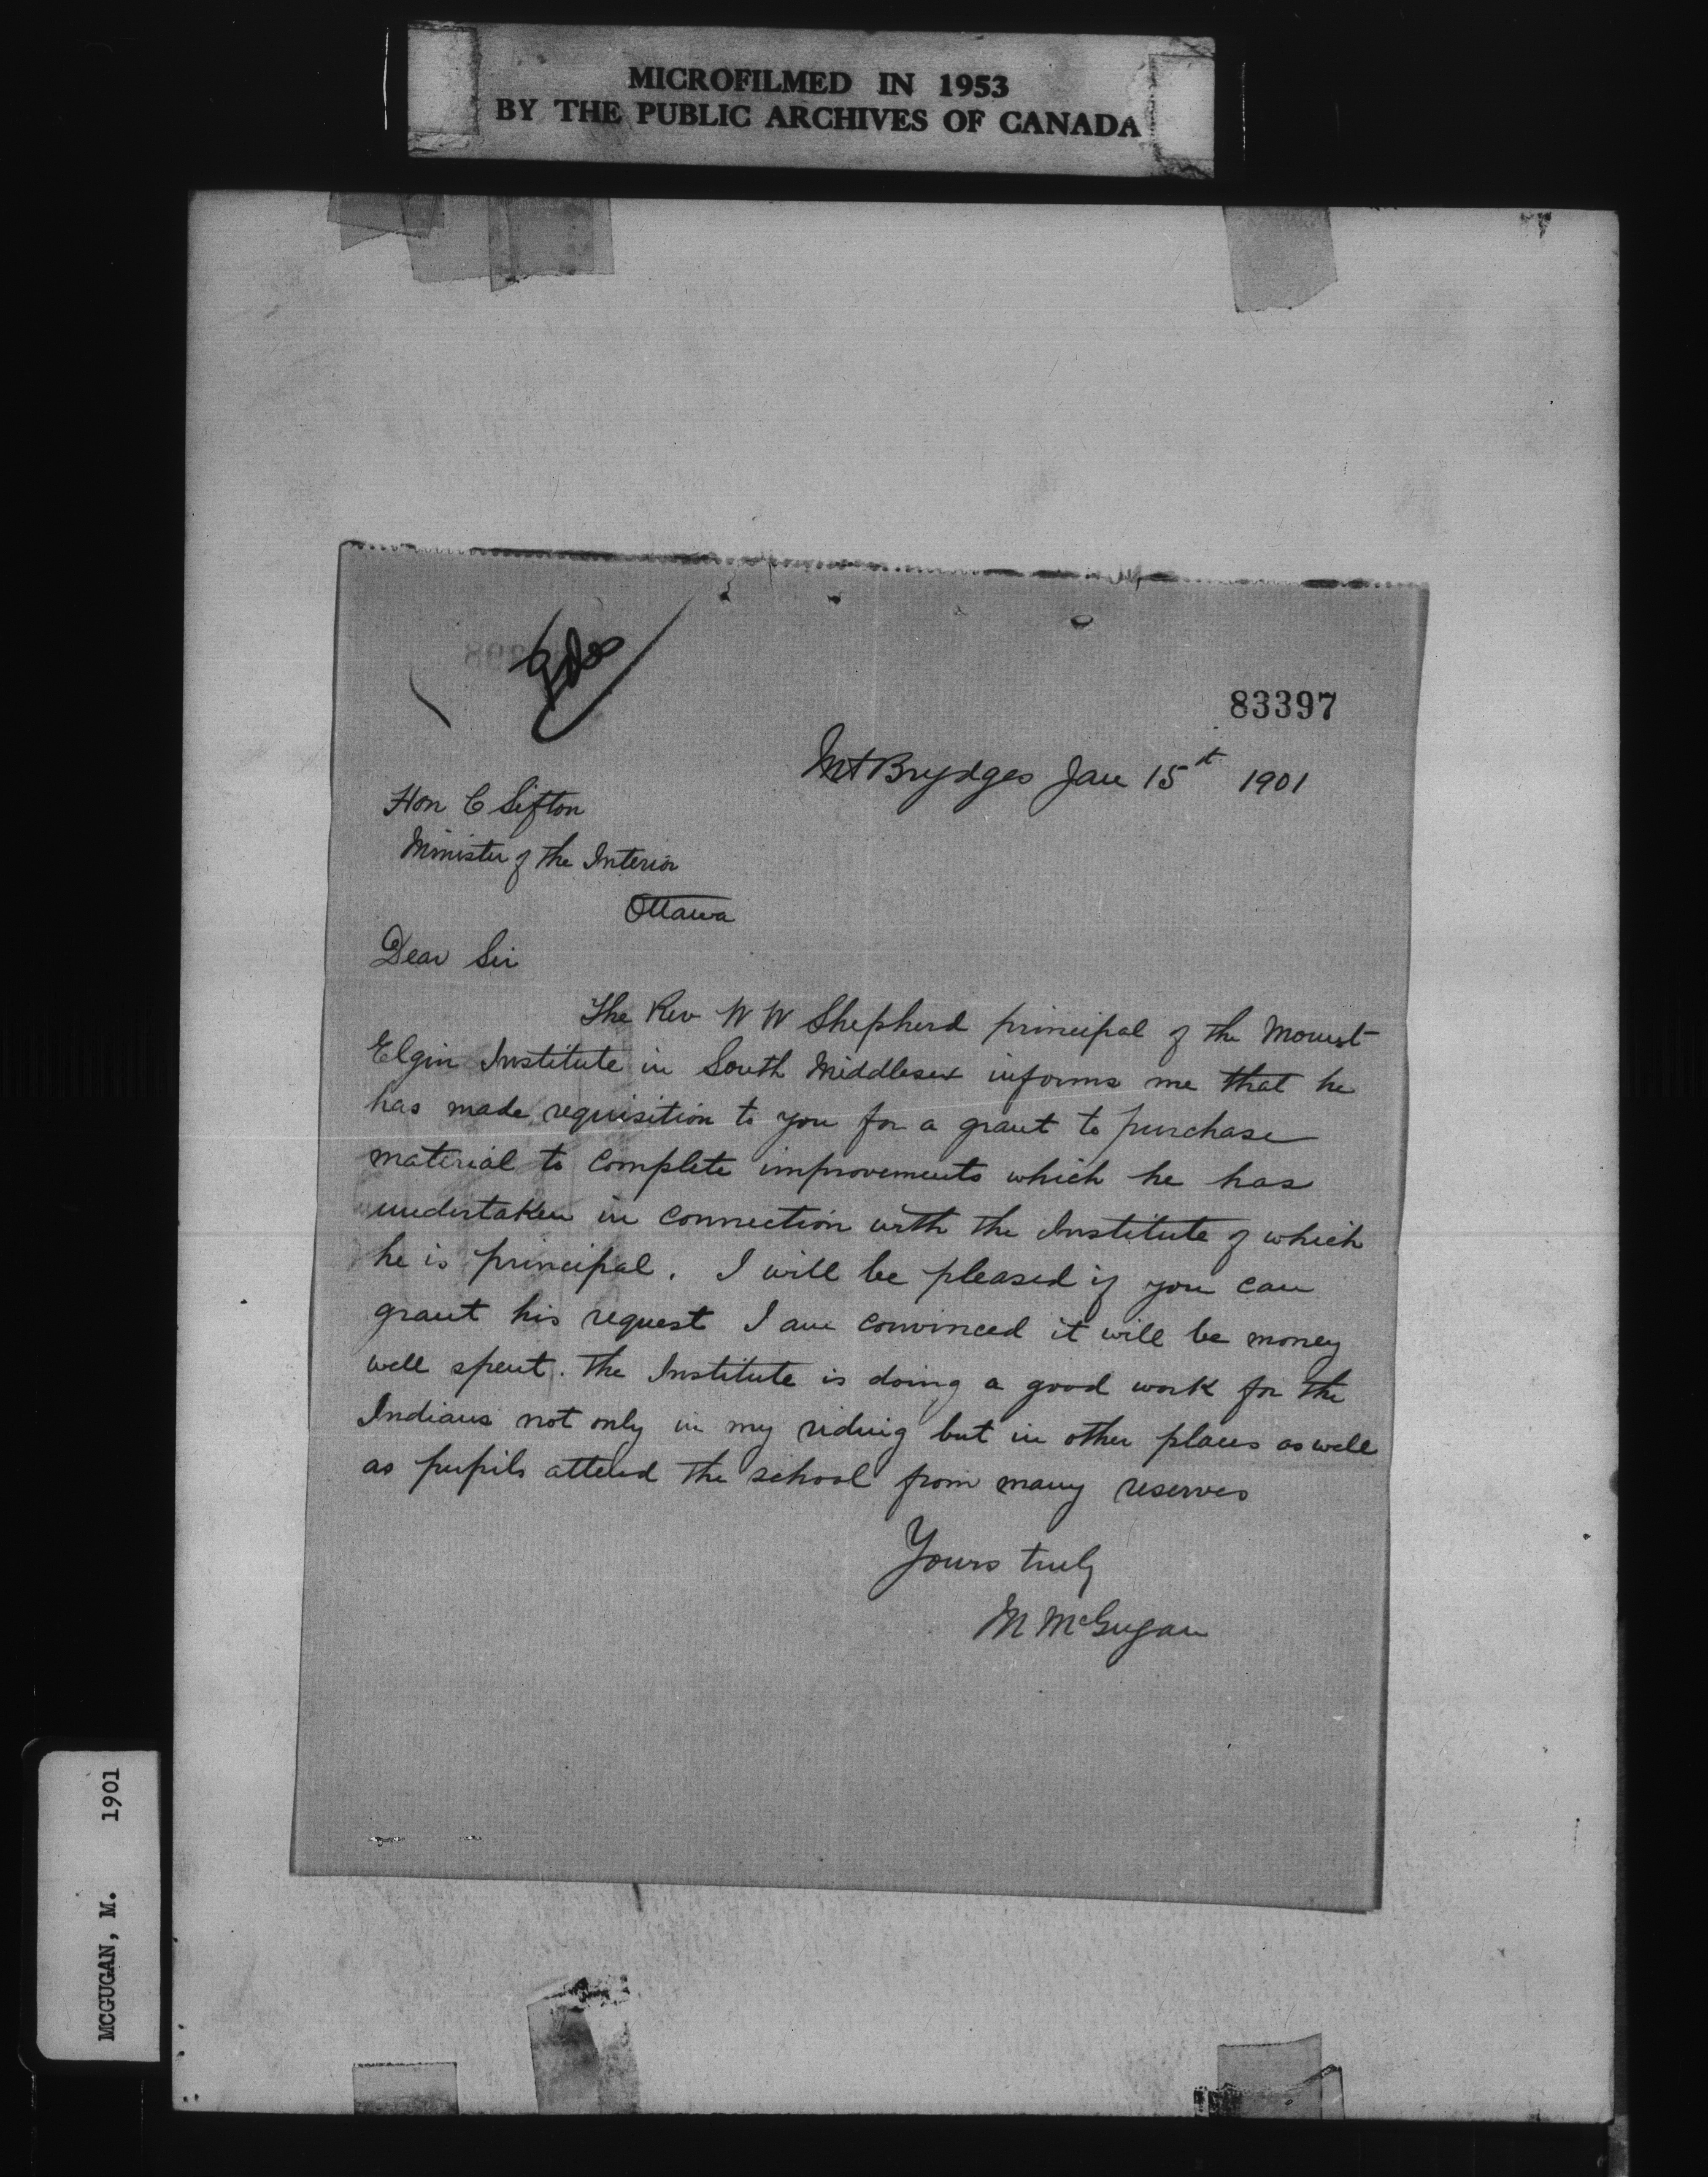 MICROFILMED IN 1953
BY THE PUBLIC ARCHIVES OF CANADA
83397
Mt Brydges Jan 15th 1901
Hon C Sifton
Minister of the Interior
Ottawa
Dear Sir
The Rev W W Shepherd principal of the Mount
Elgin Institute in South Middlesex informs me that he
has made requisition to you for a grant to purchase
material to complete improvements which he has
undertaken in connection with the Institute of which
he is principal. I will be pleased if you can
grant his request I am convinced it will be money
well spent. The Institute is doing a good work for the
Indians not only in my riding but in other places as well
as pupils attend the school from many reserves
Yours truly
M McGugan
MCGUGAN, M. 1901